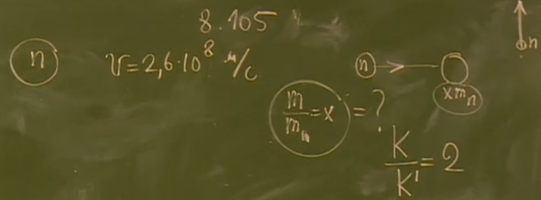 8.105
n v=2,6·10⁸ м/с n n
xmₙ
m/mₙ=x=?
K/K'=2